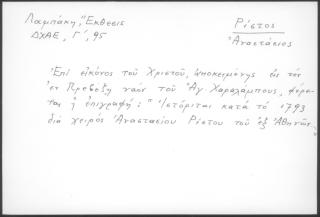 Λαμπάκη, Ἔκθεσις
ΔΧΑΕ, Γ΄, 95
Ρίστος
Ἀναστάσιος
Ἐπὶ εἰκόνος τοῦ Χριστοῦ, ἀποκειμένης εἰς τὸν
ἐν Πρεβέζῃ ναὸν τοῦ Ἁγ. Χαραλάμπους, φέρε-
ται ἡ ἐπιγραφή: "Ἱστόριται κατὰ τὸ 1793
διὰ χειρὸς Ἀναστασίου Ρίστου τοῦ ἐξ Ἀθηνῶν"